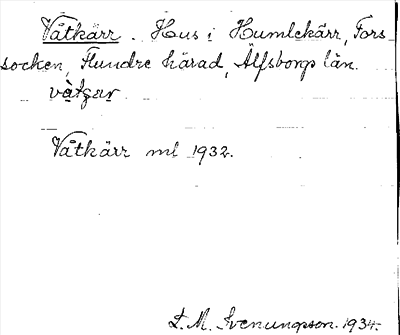 Våtkärr. Hus i Humlekärr, Fors
socken, Flundre härad, Älfsborgs län.
vàtsar
Våtkärr ml 1932.
L. M. Svenungsson. 1934.